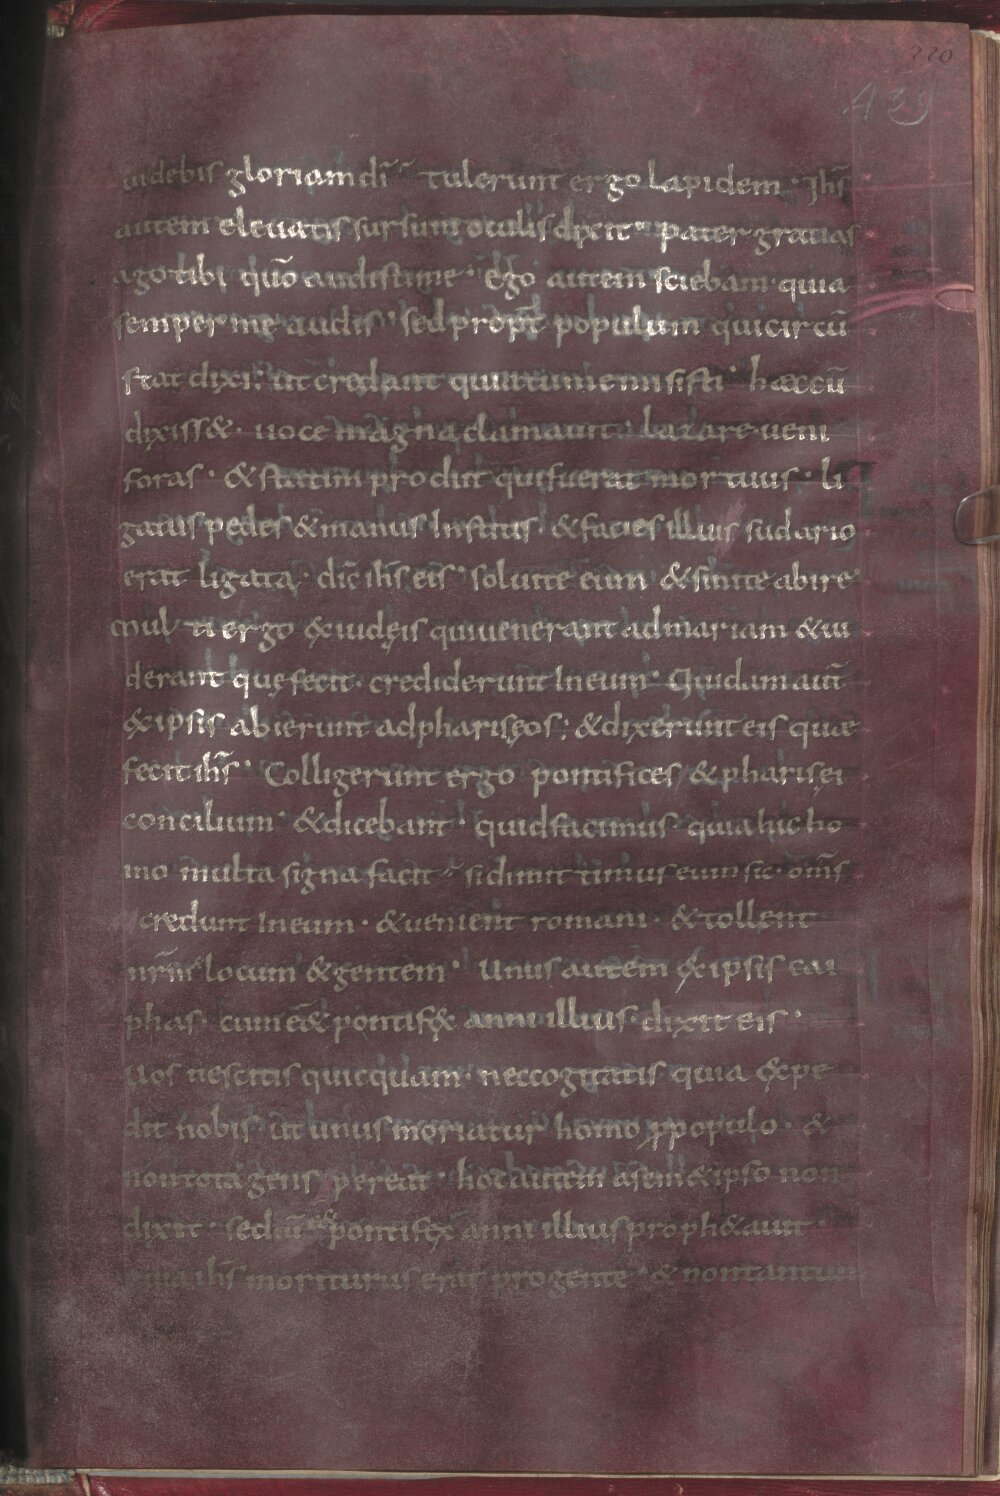 220
439
uidebis gloriam dī tulerunt ergo lapidem · Ihs̄
autem eleuatis sursum oculis dixit · pater gratias
ago tibi quō audisti me · Ego autem sciebam quia
semper me audis · sed propt̄ populum qui circū
stat dixi · ut credant quia tu me misisti · haec cū
dixiss& · uoce magna clamauit · lazare ueni
foras · & statim prodiit qui fuerat mortuus · li
gatus pedes & manus Institis · & facies illius sudario
erat ligata · dic̄ ihs̄ eis · soluite eum & sinite abire
mul ti ergo ęx iudęis qui uenerant ad mariam & ui
derant quę fecit · crediderunt In eum · Quidam aut̄
ęx ipsis abierunt ad phariseos ; & dixerunt eis quae
fecit ihs̄ · Colligerunt ergo pontifices & pharisęi
concilium & dicebant · quid facimus quia hic ho
mo multa signa facit · si dimittimus eum sic om̄s
credunt In eum · & uenient romani · & tollent
nr̄m locum & gentem · Unus autem ęx ipsis cai
phas · cum ēe& pontifęx anni illius · dixit eis ·
Uos nescitis quicquam · nec cogitatis quia ęxpe
dit nobis ut unus moriatur homo ꝓ populo · &
non tota gens pereat · hoc autem a sem&ipso non
dixit · sed cū pontifęx anni illius proph&auit ·
quia ihs̄ moriturus erat pro gente · & non tantum